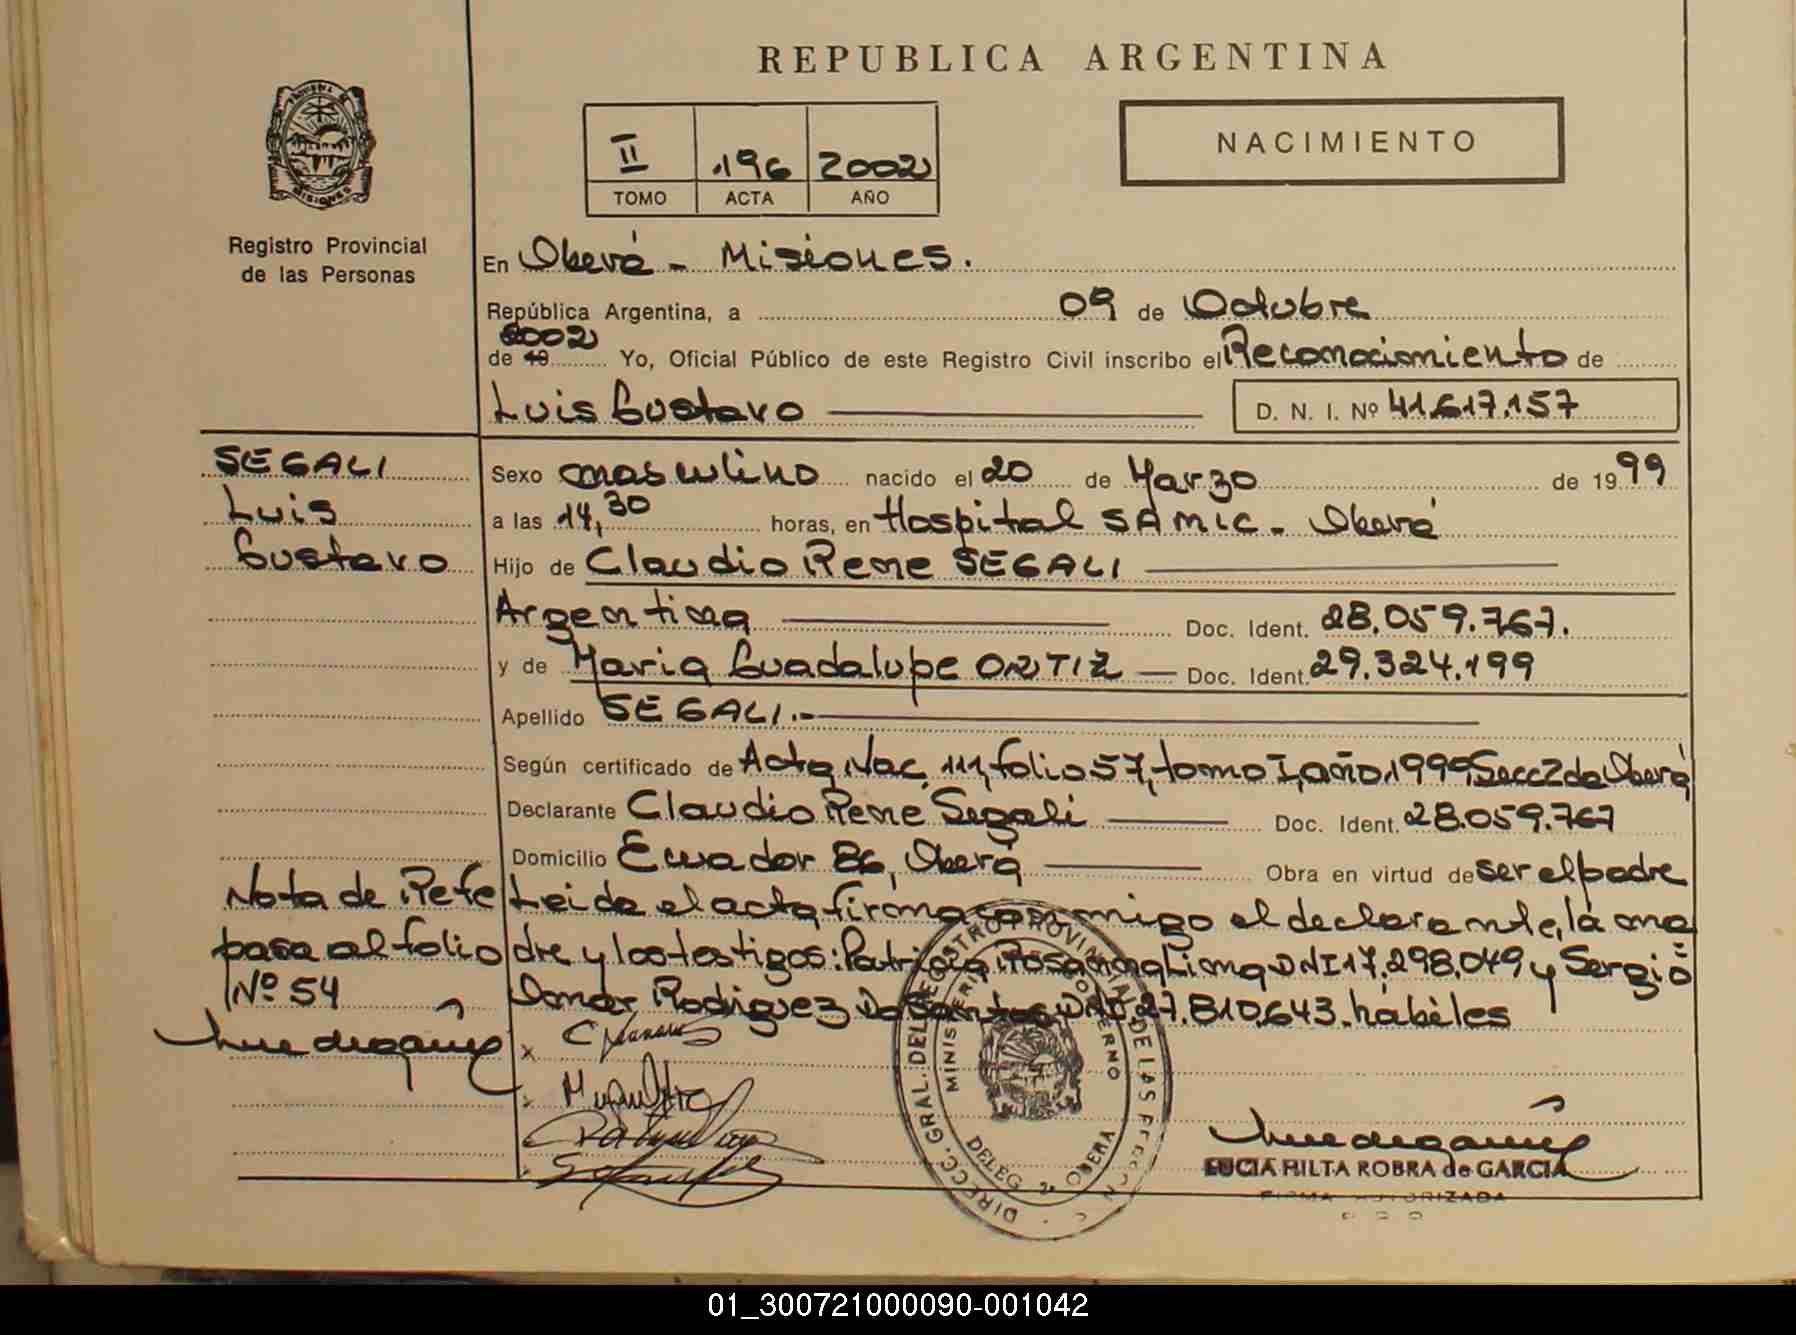 REPUBLICA ARGENTINA
II 196 2002
TOMO ACTA AÑO
NACIMIENTO
PROVINCIA DE MISIONES
Registro Provincial
de las Personas
En Oberá - Misiones.
República Argentina, a 09 de Octubre
2002
de 19 Yo, Oficial Público de este Registro Civil inscribo el Reconocimiento de
Luis Gustavo D. N. I. Nº 41.617.157
SEGALI
Luis
Gustavo
Sexo masculino nacido el 20 de Marzo de 1999
a las 14,30 horas, en Hospital SAMIC - Oberá
Hijo de Claudio Rene SEGALI
Argentina Doc. Ident. 28.059.767.
y de Maria Guadalupe ORTIZ Doc. Ident. 29.324.199
Apellido SEGALI.-
Según certificado de Acta Nac. 111, folio 57, tomo I, año 1999, Secc 2da Oberá
Declarante Claudio René Segali Doc. Ident. 28.059.767
Domicilio Ecuador 86, Oberá Obra en virtud de ser el padre
Leida el acta firma conmigo el declarante, la ma
dre y los testigos: Patricia Rosanna Lima DNI 17.298.049 y Sergio
Omar Rodriguez Do Santos DNI 27.810.643. hábiles
Nota de Refe
pasa al folio
Nº 54
DIRECC. GRAL. DEL REGISTRO PROVINCIAL DE LAS PERSONAS
MINISTERIO GOBIERNO
DELEG 2ª OBERA
LUCIA HILTA ROBRA de GARCIA
FIRMA AUTORIZADA
01_300721000090-001042